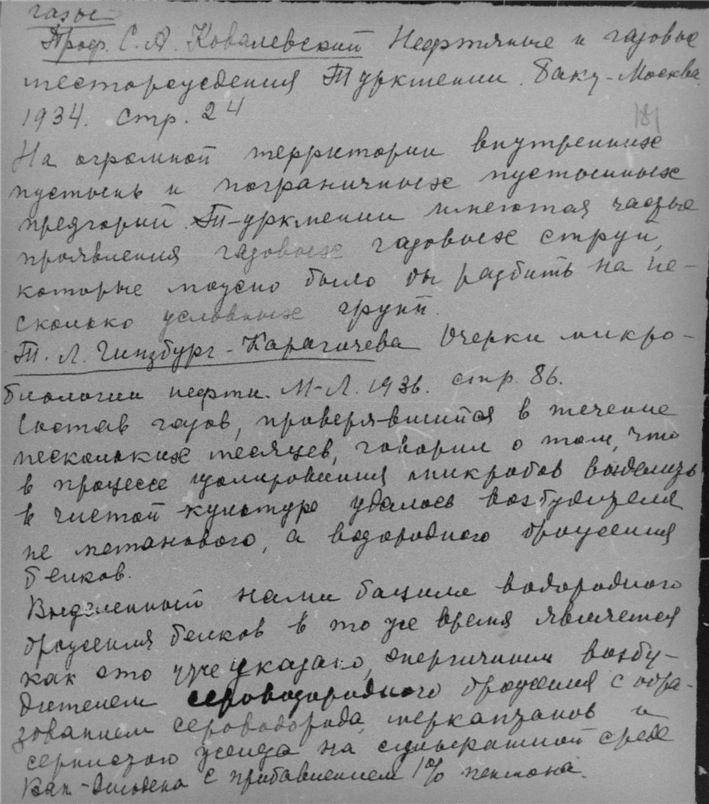 газы
Проф. С. А. Ковалевский Нефтяные и газовые
месторождения Туркмении. Баку-Москва
1934. Стр. 24
181
На огромной территории внутренних
пустынь и пограничных пустынных
предгорий Туркмении имеются частые
проявления газовых газовых струй,
которые можно было бы разбить на не-
сколько условных групп.
Т. Л. Гинзбург-Карагичева Очерки микро-
биологии нефти. М-Л. 1936. стр. 86.
Состав газов, проверявшийся в течение
нескольких месяцев, говорил о том, что
в процессе изолирования микробов выделить
в чистой культуре удалось возбудителя
не метанового, а водородного брожения
белков.
Выделенный нами бацилл водородного
брожения белков в то же время является
как это уже указано, энергичным возбу-
дителем сероводородного брожения с обра-
зованием сероводорода, меркаптанов и
сернистого железа на сульфатной среде
Ван-Дельдена с прибавлением 1% пептона.